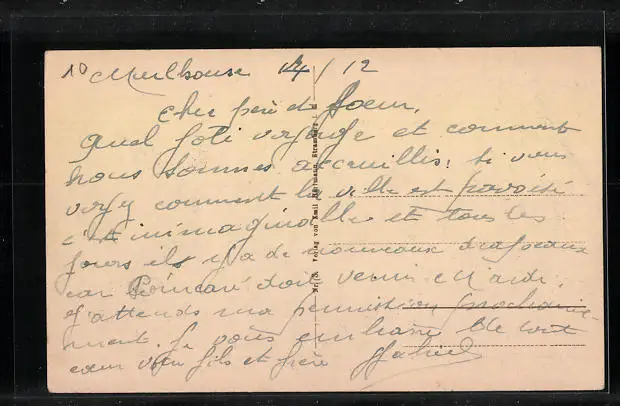 10 Mulhouse 14/12
Cher père et soeur,
Quel joli voyage et comment
nous sommes accueillis, si vous
voyez comment la ville est pavoisé
c'est inimaginable et tous les
jours ils y a de nouveaux drapeaux
car Poincaré doit venir Mardi.
J'attends ma permission prochaine-
ment. Je vous embrasse de tout
coeur votre fils et frère Gabriel
Verlag von Emil Hartmann, Strassburg